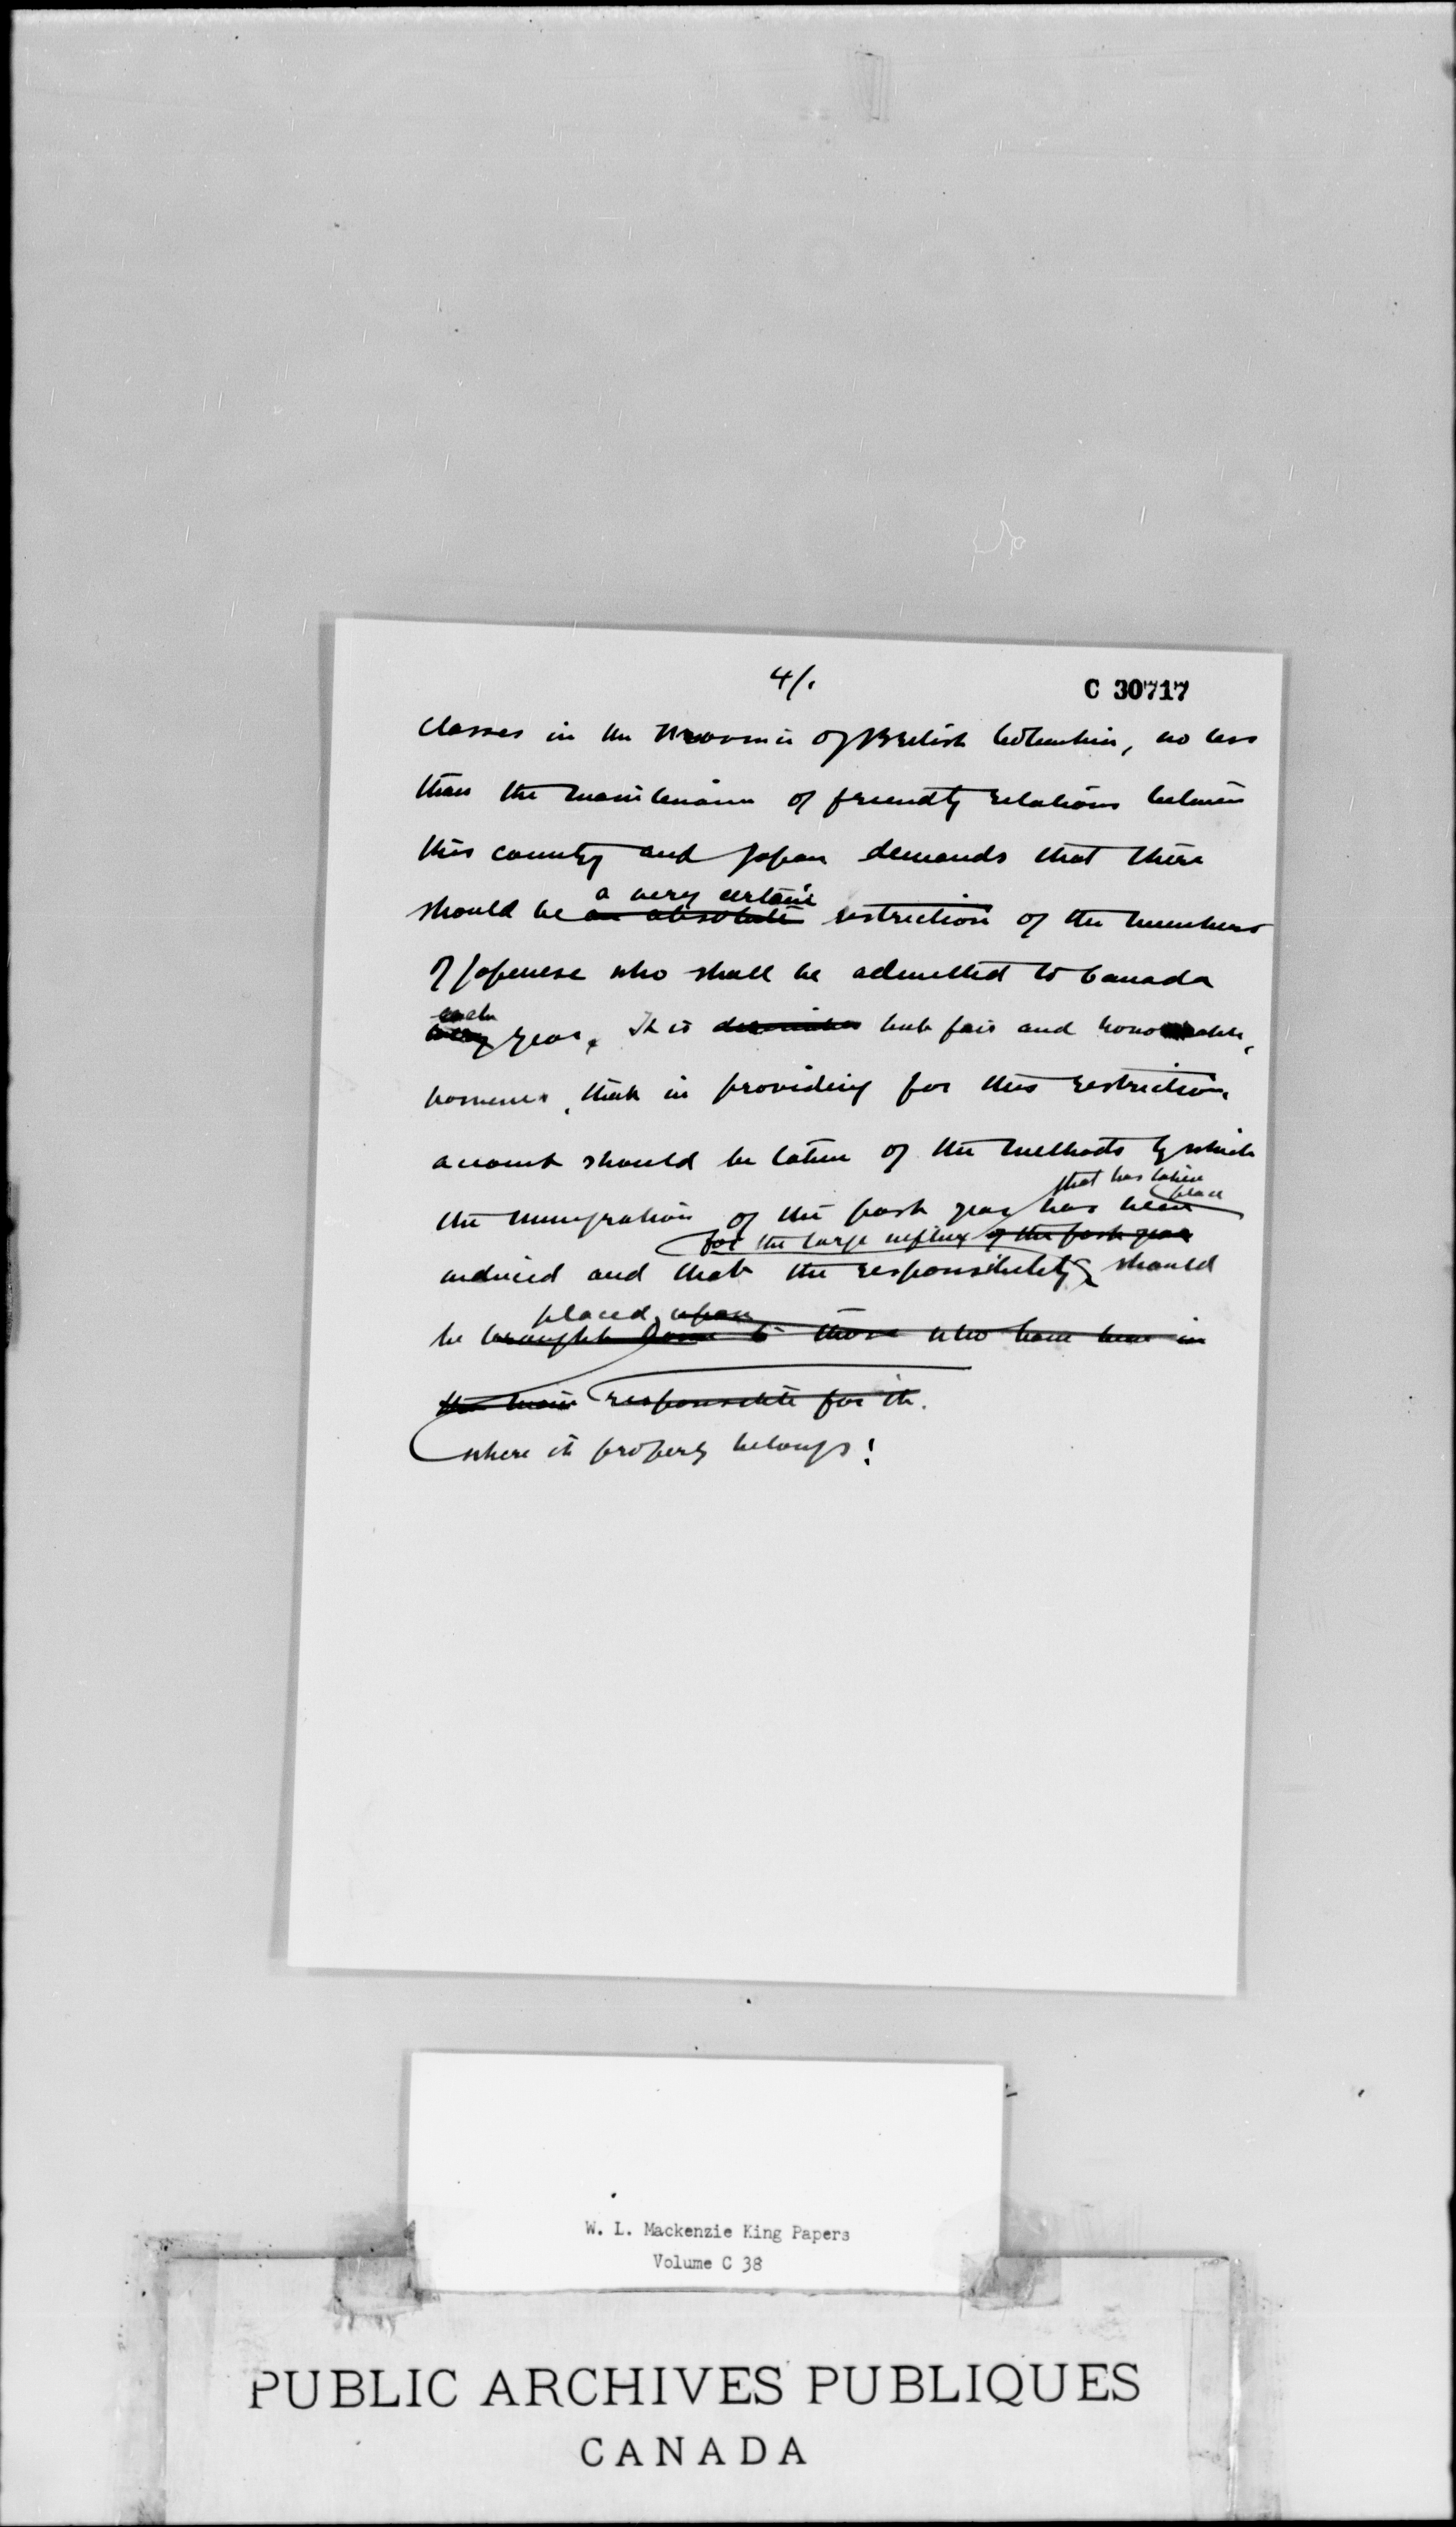 4/.
C 30717
classes in the Province of British Columbia, no less
than the maintenance of friendly relations between
this country and Japan demands that there
a very certain
should be an absolute restriction of the numbers
of Japanese who shall be admitted to Canada
each
every year. It is but fair and honorable,
however, that in providing for this restriction,
account should be taken of the methods by which
that has taken
place
the immigration of the past year has been
for the large influx of the past year
induced and that the responsibility should
placed upon
be brought home to those who have been in
the main responsible for it.
where it properly belongs!
W. L. Mackenzie King Papers
Volume C 38
PUBLIC ARCHIVES PUBLIQUES
CANADA